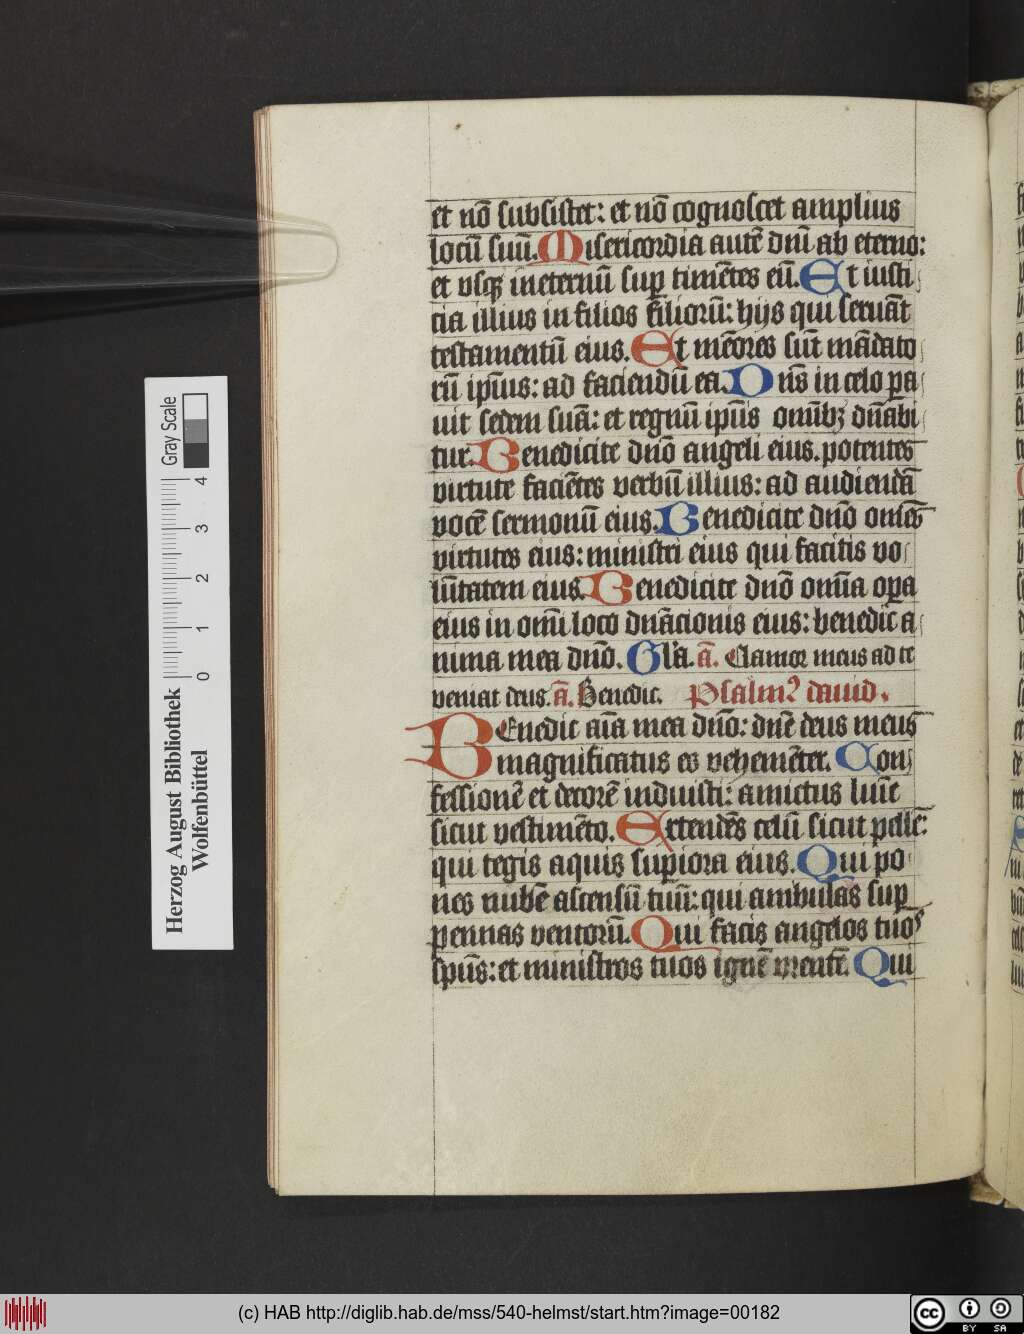 et nō subsistet: et nō cognoscet amplius
locū suū. Misericordia autē dni̅ ab eterno:
et vsqꝫ in eternū sup timētes eū. Et iusti
cia illius in filios filiorū: hijs qui seruāt
testamentū eius. Et mēores sūt mādato
rū ipīus: ad faciendū ea. Dn̄s in celo pa
uit sedem suā: et regnū ipīus om̄ibꝫ dn̄abi
tur. Benedicite dn̄o angeli eius. potentes
virtute faciētes verbū illius: ad audiendā
vocē sermonū eius. Benedicite dn̄o om̄es
virtutes eius: ministri eius qui facitis vo
lūtatem eius. Benedicite dn̄o om̄ia opa
eius in om̄i loco dn̄acionis eius: benedic a
nima mea dn̄o. Gl̄a. a̅. Clamor meus ad te
veniat deus. a̅. Benedic. Psalmꝰ dauid.
Benedic aīa mea dn̄o: dn̄e deus meus
magnificatus es vehemēter. Con
fessionē et decorē induisti: amictus lūīe
sicut vestimēto. Extendēs celū sicut pellē:
qui tegis aquis supiora eius. Qui po
nes nubē ascensū tuū: qui ambulās sup
pennas ventorū. Qui facis angelos tuos
sp̄us: et ministros tuos ignē vrentē. Qui
Gray Scale
4 3 2 1 0
Herzog August Bibliothek
Wolfenbüttel
(c) HAB http://diglib.hab.de/mss/540-helmst/start.htm?image=00182
cc BY SA